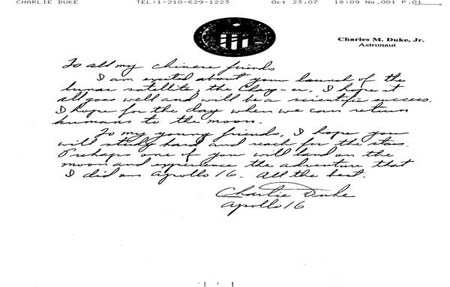 CHARLIE DUKE TEL:1-210-629-1223 Oct 23,07 18:09 No.001 P.01
Charles M. Duke, Jr.
Astronaut
To all my chinese friends
I am excited about your launch of the
lunar satellite, the Chang-er. I hope it
all goes well and will be a scientific success.
I hope for the day when we can return
humans to the moon.
To my young friends, I hope you
will study hard and reach for the stars.
Perhaps one of you will land on the
moon and experience the adventure that
I did on Apollo 16. All the best.
Charlie Duke
Apollo 16